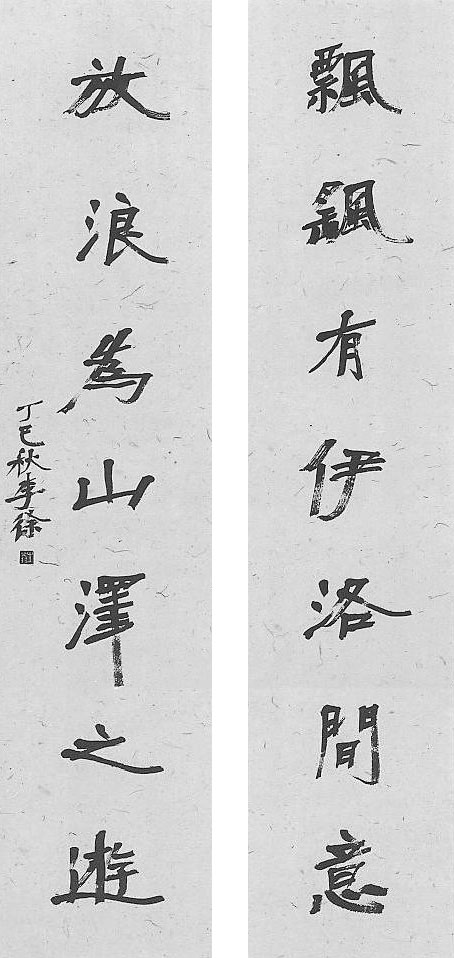 飄飖有伊洛間意
放浪為山澤之遊
丁巳秋李徐